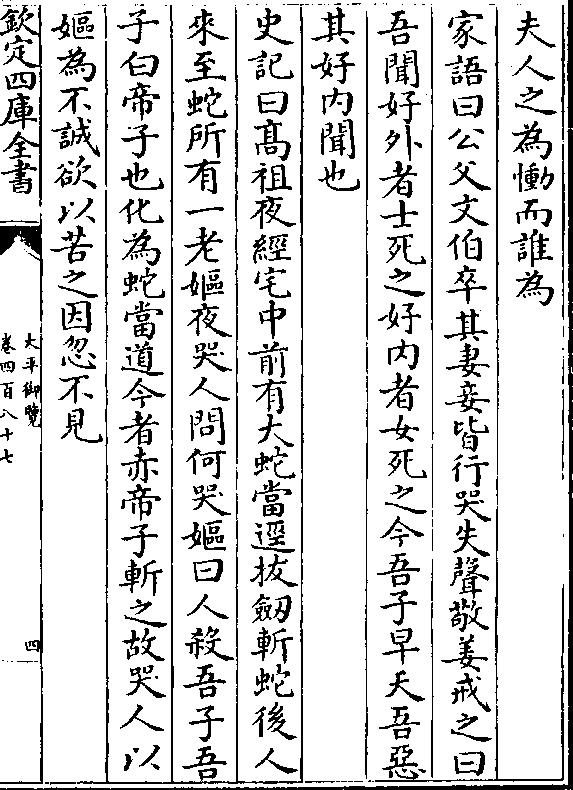 夫人之為慟而誰為
家語曰公父文伯卒其妻妾皆行哭失聲敬姜戒之曰
吾聞好外者士死之好内者女死之今吾子早夭吾惡
其好内聞也
史記曰髙祖夜經宅中前有大蛇當逕拔劔斬蛇後人
來至蛇所有一老嫗夜哭人問何哭嫗曰人殺吾子吾
子白帝子也化為蛇當道今者赤帝子斬之故哭人以
嫗為不誠欲以苦之因忽不見
欽定四庫全書
太平御覽
卷四百八十七
四